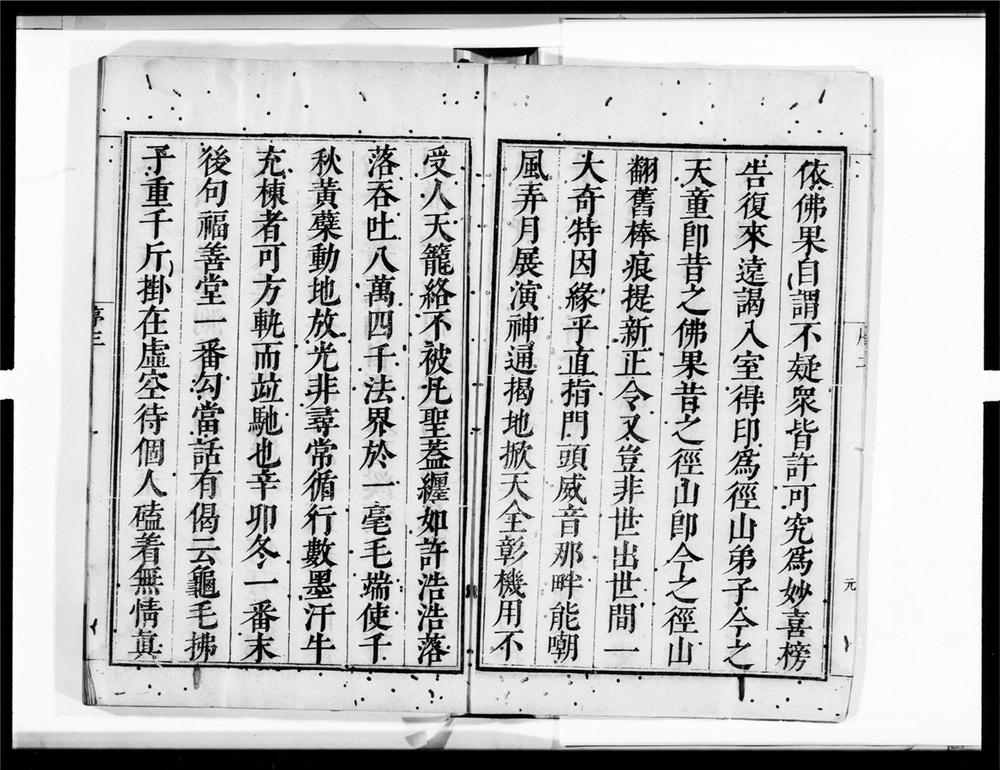 依佛果自謂不疑衆皆許可究爲妙喜榜
告復來遠謁入室得印爲徑山弟子今之
天童卽昔之佛果昔之徑山卽今之徑山
翻舊棒痕提新正令又豈非世出世間一
大奇特因緣乎直指門頭威音那畔能嘲
風弄月展演神通揭地掀天全彰機用不
受人天籠絡不被凡聖蓋纏如許浩浩落
落吞吐八萬四千法界於一毫毛端使千
秋黃蘗動地放光非尋常循行數墨汗牛
充棟者可方軌而竝馳也辛卯冬一番末
後句福善堂一番勾當話有偈云龜毛拂
子重千斤掛在虛空待個人磕着無情眞
元
序三